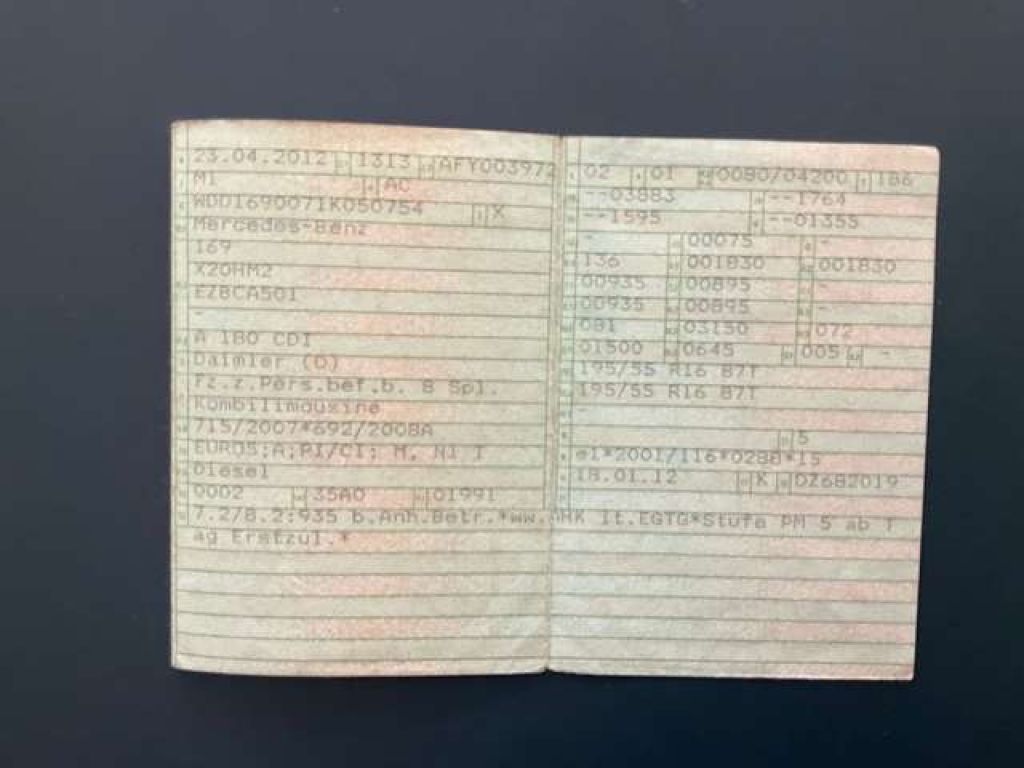 23.04.2012 1313 AFY003972
M1 AC
WDD1690071K050754 X
Mercedes-Benz
169
X20HM2
EZBCA501
-
A 180 CDI
Daimler (D)
Fz.z.Pers.bef.b. 8 Spl.
Kombilimousine
715/2007*692/2008A
EURO5;A;PI/CI; M, N1 I
Diesel
0002 35A0 01991
7.2/8.2:935 b.Anh.Betr.*ww.AHK lt.EGTG*Stufe PM 5 ab T
ag Erstzul.*
02 01 0080/04200 186
--03883 --1764
--1595 --01355
- 00075 -
136 001830 001830
00935 00895 -
00935 00895 -
081 03150 072
01500 0645 005 -
195/55 R16 87T
195/55 R16 87T
-
5
e1*2001/116*0288*15
18.01.12 K DZ682019